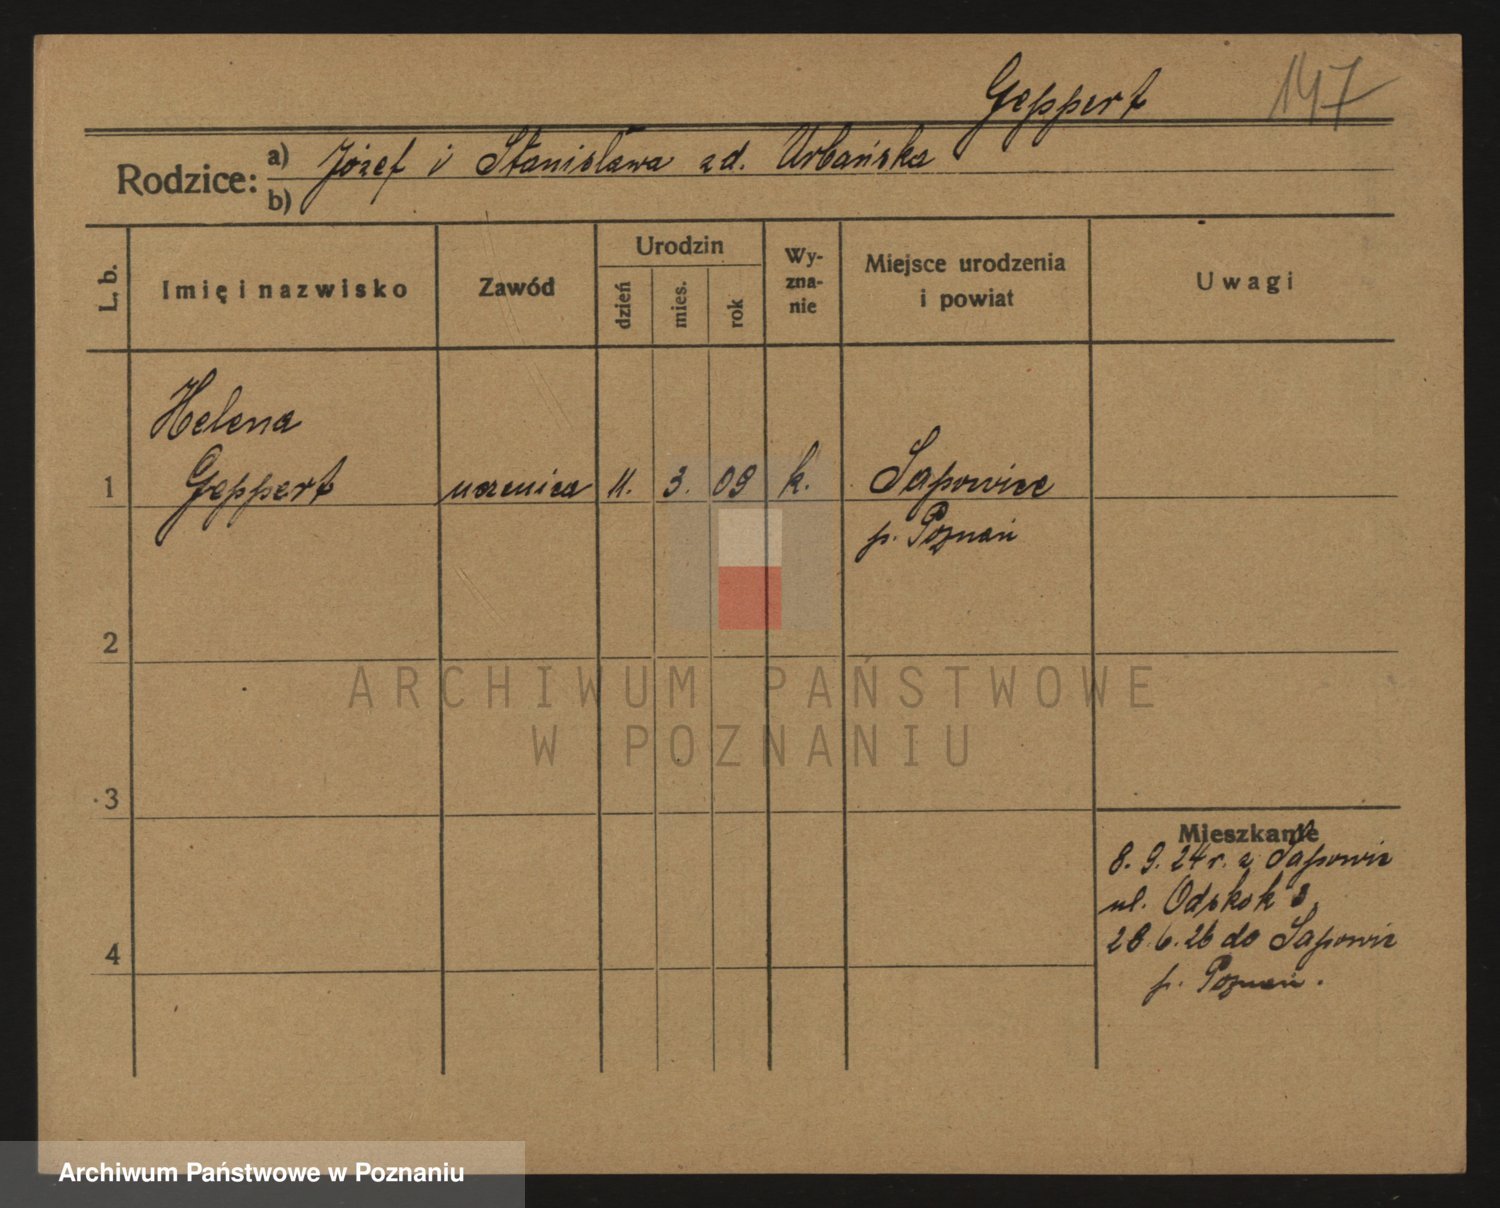 Geppert 147
Rodzice: a) Józef i Stanisława zd. Urbańska
b)
L. b. Imię i nazwisko Zawód Urodzin dzień mies. rok Wyznanie Miejsce urodzenia i powiat Uwagi
Helena
1 Geppert uczenica 11. 3. 09 k. Sapowice
p. Poznań
2
ARCHIWUM PAŃSTWOWE
W POZNANIU
3
Mieszkanie
8. 9. 24 r. z Sapowic
ul. Odskok 3,
4 28. 6. 26 do Sapowic
p. Poznań.
Archiwum Państwowe w Poznaniu